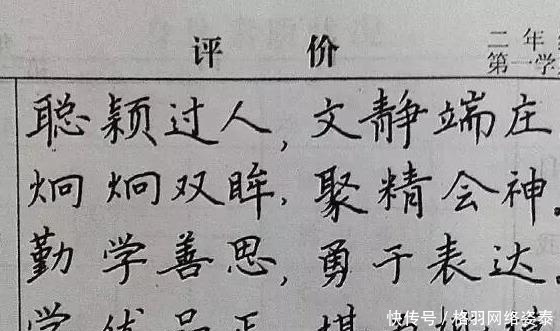 评 价
二年
第一学
聪颖过人,文静端庄
炯炯双眸,聚精会神。
勤学善思,勇于表达
快传号/格羽网络姿泰